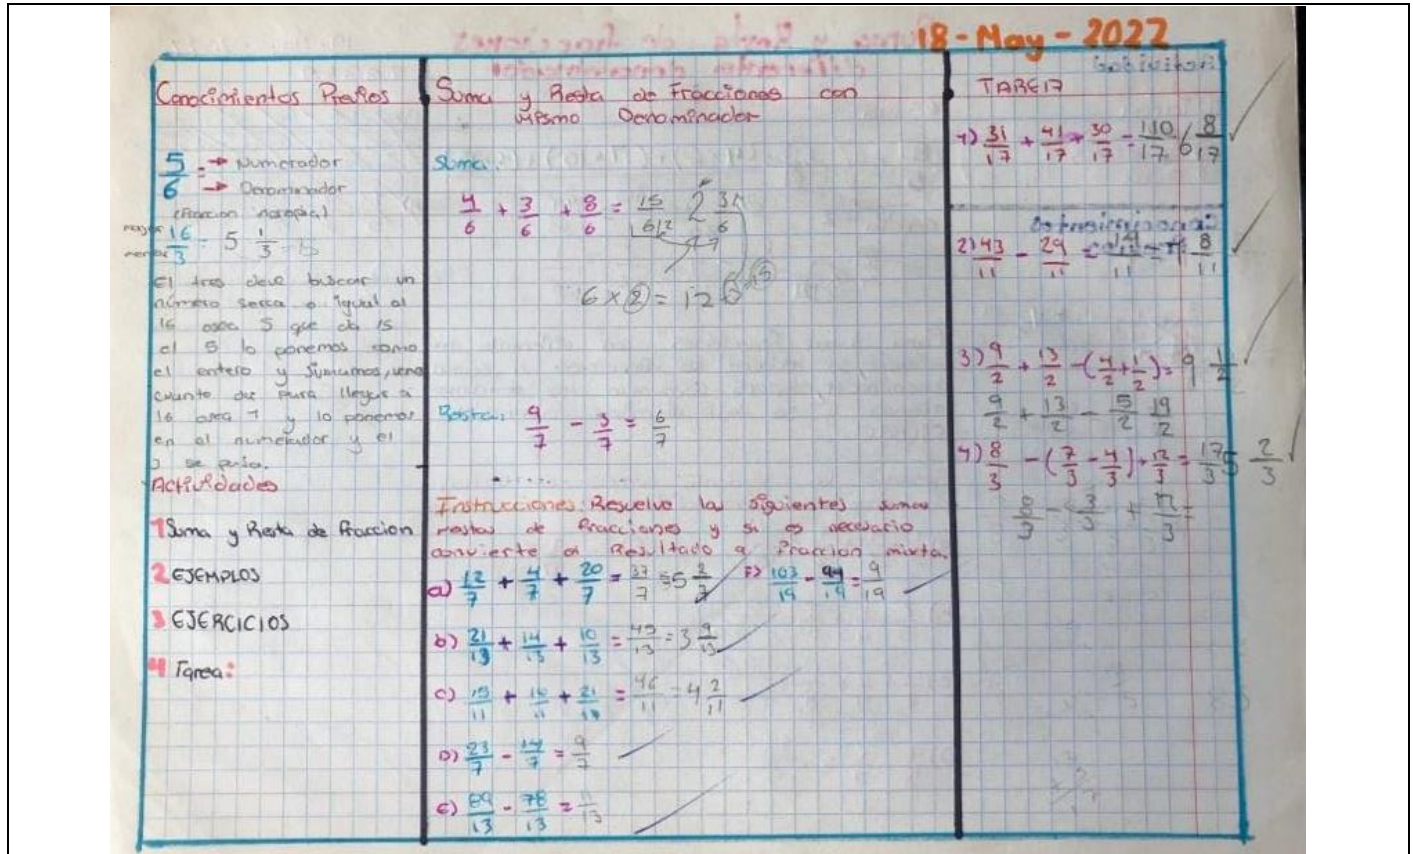 18 - May - 2022
Conocimientos Previos
5/6 = → Numerador
→ Denominador
mayor 16/3 = 5 1/3
menor
El tres deve buscar un
número serca o igual al
16 osea 5 que da 15
el 5 lo ponemos como
el entero y sumamos,
cuanto
16 osea 1 y lo ponemos
en el numerador y el
3 se pasa.
Actividades
1 Suma y Resta de fraccion
2 EJEMPLOS
3 EJERCICIOS
4 Tarea:
Suma y Resta de Fracciones con
Mismo Denominador
Suma:
4/6 + 3/6 + 8/6 = 15/6 2 3/6
6 x 2 = 12
Resta: 9/7 - 3/7 = 6/7
Instrucciones: Resuelve la siguientes sumas
restas de fracciones y si es necesario
convierte el Resultado a fraccion mixta.
a) 12/7 + 4/7 + 20/7 = 37/7 = 5 2/7
F) 103/19 - 94/19 = 9/19
b) 21/13 + 14/13 + 10/13 = 45/13 = 3 9/13
c) 15/11 + 10/11 + 21/11 = 46/11 = 4 2/11
D) 23/7 - 14/7 = 9/7
E) 89/13 - 78/13 = 11/13
TAREA
1) 31/17 + 41/17 + 30/17 = 110/17 6 8/17
2) 43/11 - 29/11 = 14/11 = 8/11
3) 9/2 + 13/2 - (4/2 + 1/2) = 9 1/2
9/2 + 13/2 - 5/2 19/2
4) 8/3 - (7/3 - 4/3) + 12/3 = 17/3 5 2/3
8/3 - 3/3 + 12/3 =